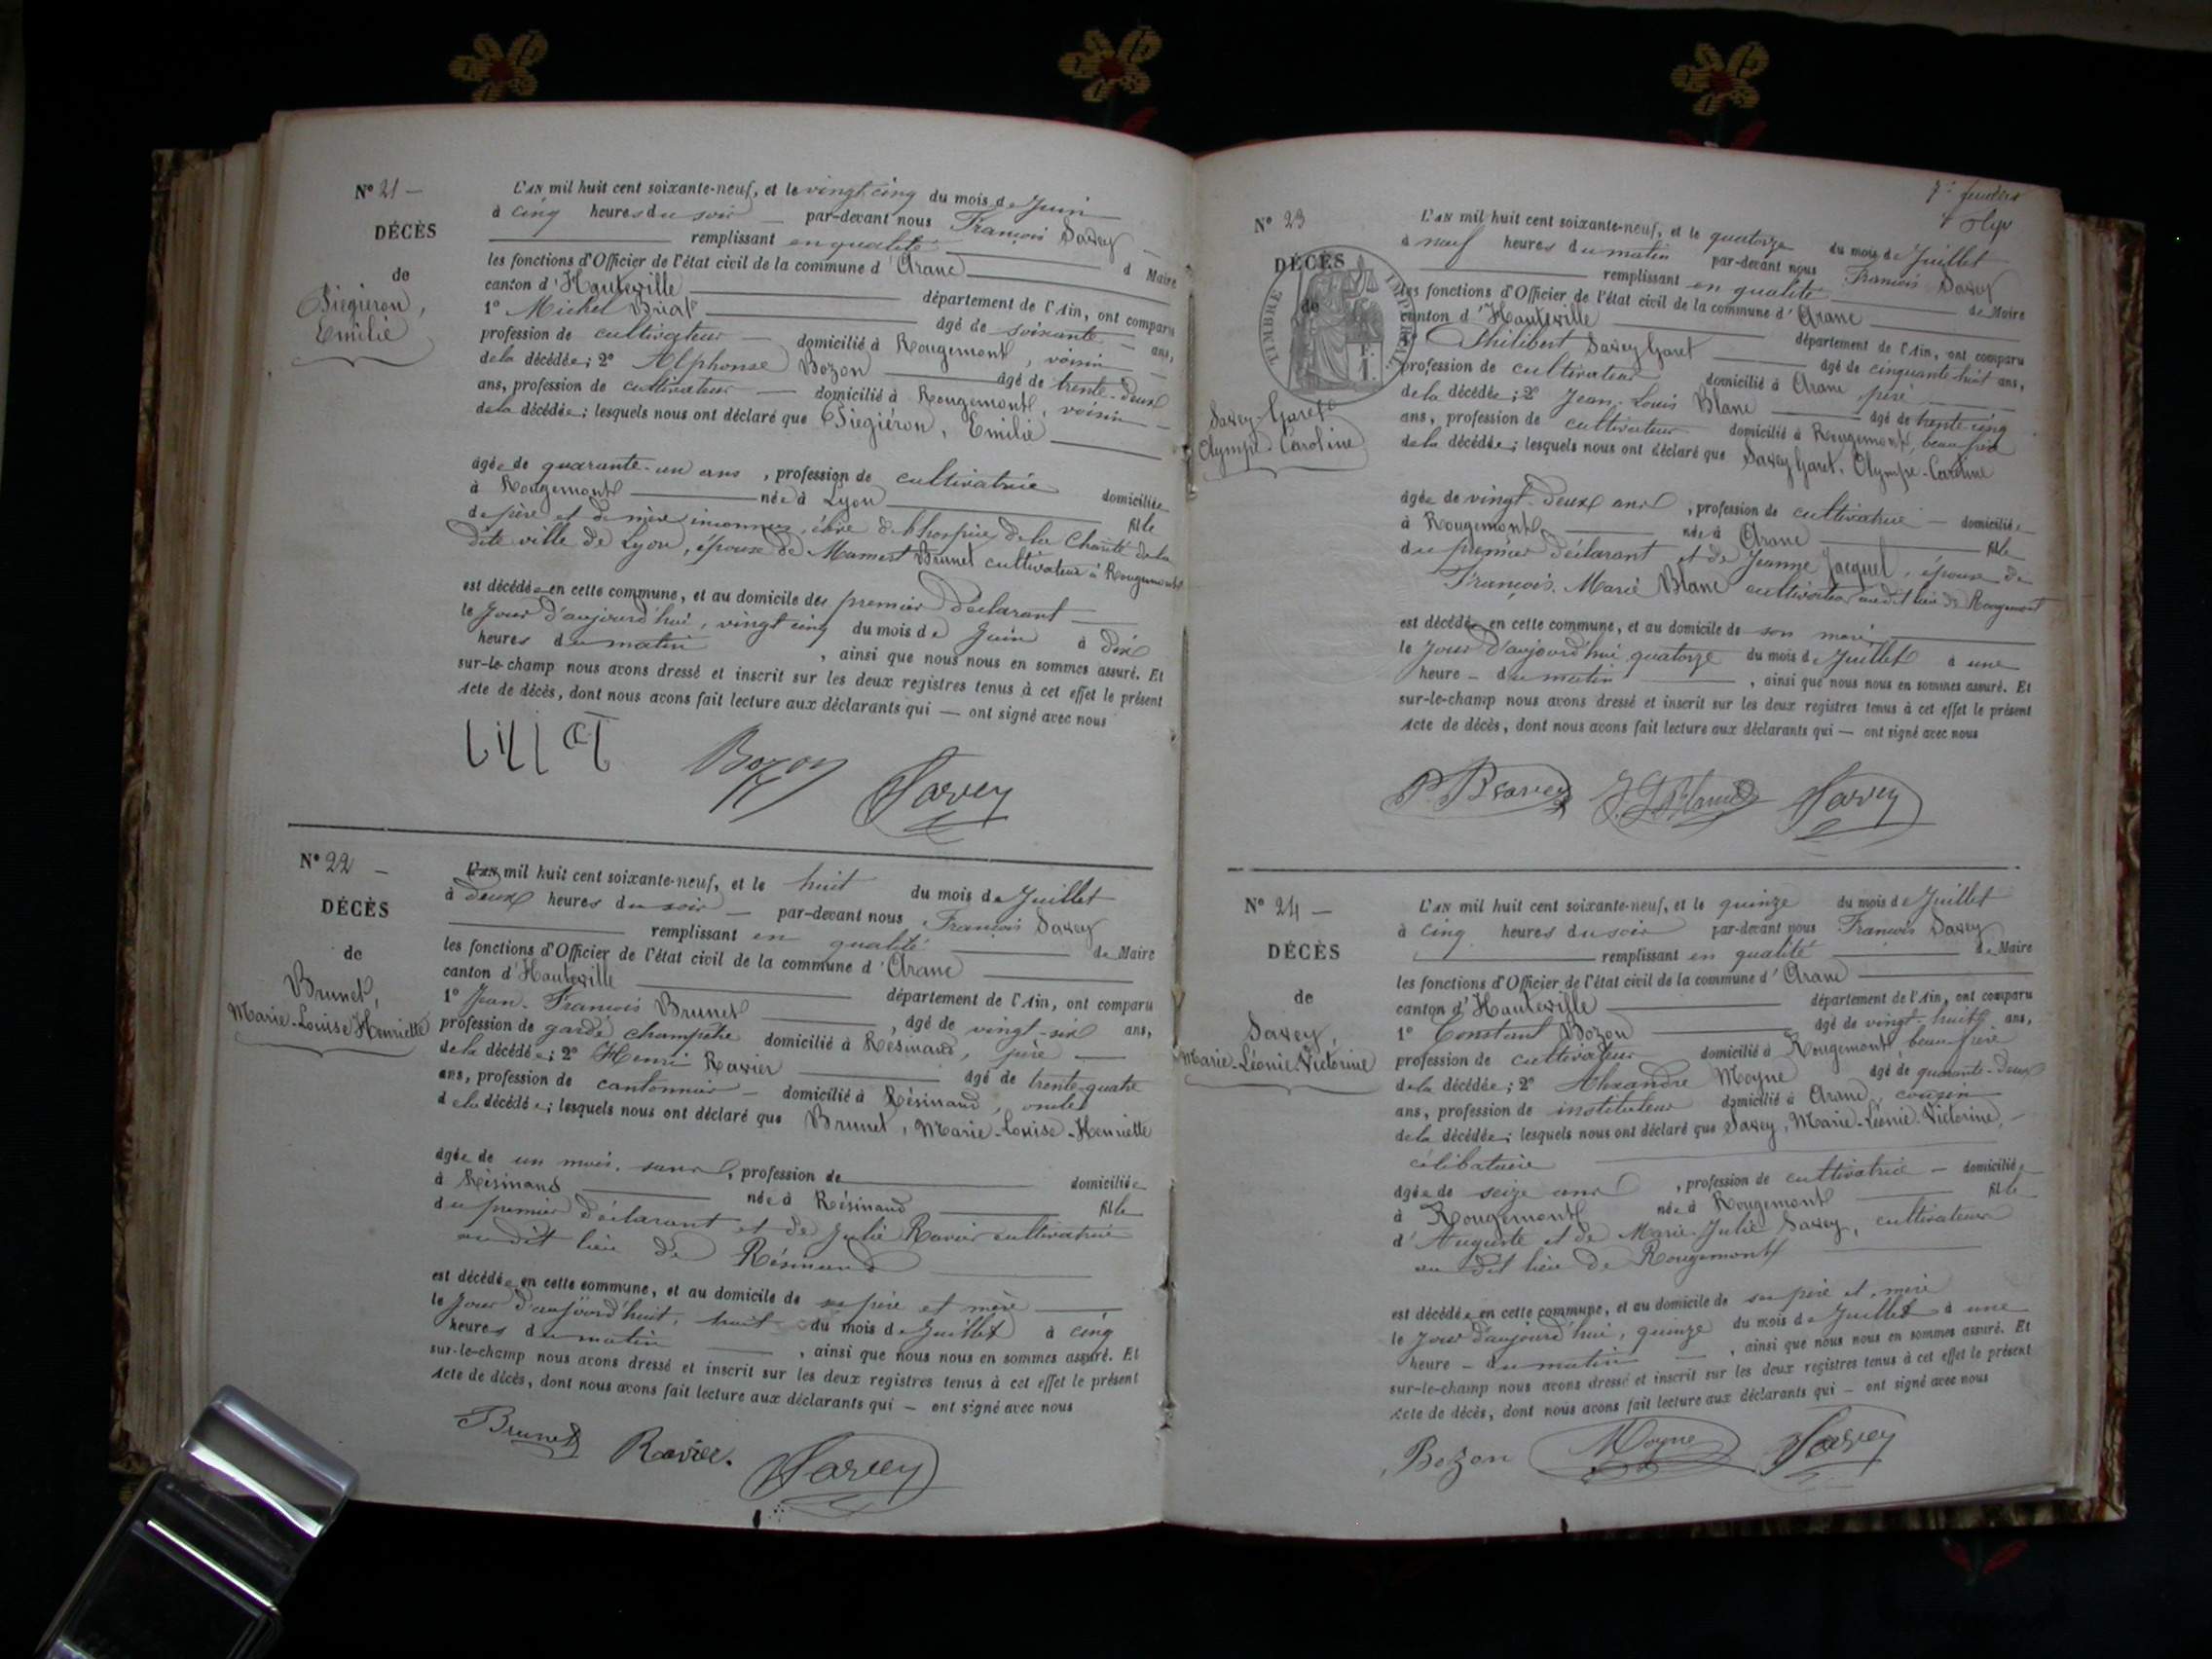 N° 21 —
DÉCÈS
de
Siegieron,
Emilie
L'AN mil huit cent soixante-neuf, et le vingt cinq du mois de Juin
à cinq heures du soir — par-devant nous François Savey
remplissant en qualité d Maire
les fonctions d'Officier de l'état civil de la commune d'Aranc
canton d'Hauteville département de l'Ain, ont comparu
1° Michel âgé de soixante — ans,
profession de cultivateur — domicilié à Rougemont, voisin —
de la décédée; 2° Alphonse Bozon âgé de trente-deux
ans, profession de cultivateur — domicilié à Rougemont, voisin —
de la décédée; lesquels nous ont déclaré que Siegiéron, Emilie
âgée de quarante-un ans, profession de cultivatrice domiciliée
à Rougemont née à Lyon fille
de père et de mère inconnus, de l'hospice de la Charité de la
dite ville de Lyon, épouse de Mamert Brunet cultivateur à Rougemont
est décédée en cette commune, et au domicile des premier déclarant
le Jour d'aujourd'hui, vingt cinq du mois de Juin à dix
heures du matin, ainsi que nous nous en sommes assuré. Et
sur-le-champ nous avons dressé et inscrit sur les deux registres tenus à cet effet le présent
Acte de décès, dont nous avons fait lecture aux déclarants qui — ont signé avec nous
Bozon Savey
N° 22 —
DÉCÈS
de
Brunet,
Marie-Louise Henriette
L'AN mil huit cent soixante-neuf, et le huit du mois de Juillet
à deux heures du soir — par-devant nous François Savey
remplissant en qualité de Maire
les fonctions d'Officier de l'état civil de la commune d'Aranc
canton d'Hauteville département de l'Ain, ont comparu
1° Jean-François Brunet, âgé de vingt-six ans,
profession de garde champêtre domicilié à Résinand, père —
de la décédée; 2° Henri Ravier âgé de trente-quatre
ans, profession de cantonnier — domicilié à Résinand, oncle
de la décédée; lesquels nous ont déclaré que Brunet, Marie-Louise-Henriette
âgée de un mois, sans, profession de domiciliée
à Résinand née à Résinand fille
du premier déclarant et de Julie Ravier cultivatrice
au dit lieu de Résinand
est décédée en cette commune, et au domicile de ses père et mère
le Jour d'aujourd'huit, huit du mois de Juillet à cinq
heures du matin, ainsi que nous nous en sommes assuré. Et
sur-le-champ nous avons dressé et inscrit sur les deux registres tenus à cet effet le présent
Acte de décès, dont nous avons fait lecture aux déclarants qui — ont signé avec nous
Brunet Ravier. Savey
N° 23
DÉCÈS
de
TIMBRE IMPERIAL
F.
1.
Savey-Garet
Olympe-Caroline
L'AN mil huit cent soixante-neuf, et le quatorze du mois de Juillet
à neuf heures du matin par-devant nous François Savey
remplissant en qualité de Maire
les fonctions d'Officier de l'état civil de la commune d'Aranc
canton d'Hauteville département de l'Ain, ont comparu
1° Philibert Savey Garet âgé de cinquante-huit ans,
profession de cultivateur domicilié à Aranc père
de la décédée; 2° Jean-Louis Blanc âgé de trente-cinq
ans, profession de cultivateur domicilié à Rougemont, beau frère
de la décédée; lesquels nous ont déclaré que Savey Garet, Olympe-Caroline
âgée de vingt-deux ans, profession de cultivatrice — domiciliée
à Rougemont née à Aranc fille
du premier déclarant et de Jeanne Jacquet, épouse de
François-Marie Blanc cultivateur audit lieu de Rougemont
est décédée en cette commune, et au domicile de son mari
le Jour d'aujourd'hui quatorze du mois de Juillet à une
heure — du matin, ainsi que nous nous en sommes assuré. Et
sur-le-champ nous avons dressé et inscrit sur les deux registres tenus à cet effet le présent
Acte de décès, dont nous avons fait lecture aux déclarants qui — ont signé avec nous
Savey
N° 24 —
DÉCÈS
de
Savey,
Marie-Léonie-Victorine
L'AN mil huit cent soixante-neuf, et le quinze du mois de Juillet
à cinq heures du soir par-devant nous François Savey
remplissant en qualité de Maire
les fonctions d'Officier de l'état civil de la commune d'Aranc
canton d'Hauteville département de l'Ain, ont comparu
1° Constant Bozon âgé de vingt-huit ans,
profession de cultivateur domicilié à Rougemont, beau frère
de la décédée; 2° Alexandre Moyne âgé de quarante-deux
ans, profession de instituteur domicilié à Aranc, cousin
de la décédée; lesquels nous ont déclaré que Savey, Marie-Léonie-Victorine, —
célibataire
âgée de seize ans, profession de cultivatrice — domiciliée
à Rougemont née à Rougemont fille
d'Auguste et de Marie-Julie Savey, cultivateurs
au dit lieu de Rougemont
est décédée en cette commune, et au domicile de ses père et mère
le Jour d'aujourd'hui, quinze du mois de Juillet à une
heure — du matin —, ainsi que nous nous en sommes assuré. Et
sur-le-champ nous avons dressé et inscrit sur les deux registres tenus à cet effet le présent
Acte de décès, dont nous avons fait lecture aux déclarants qui — ont signé avec nous
Bozon Moyne Savey